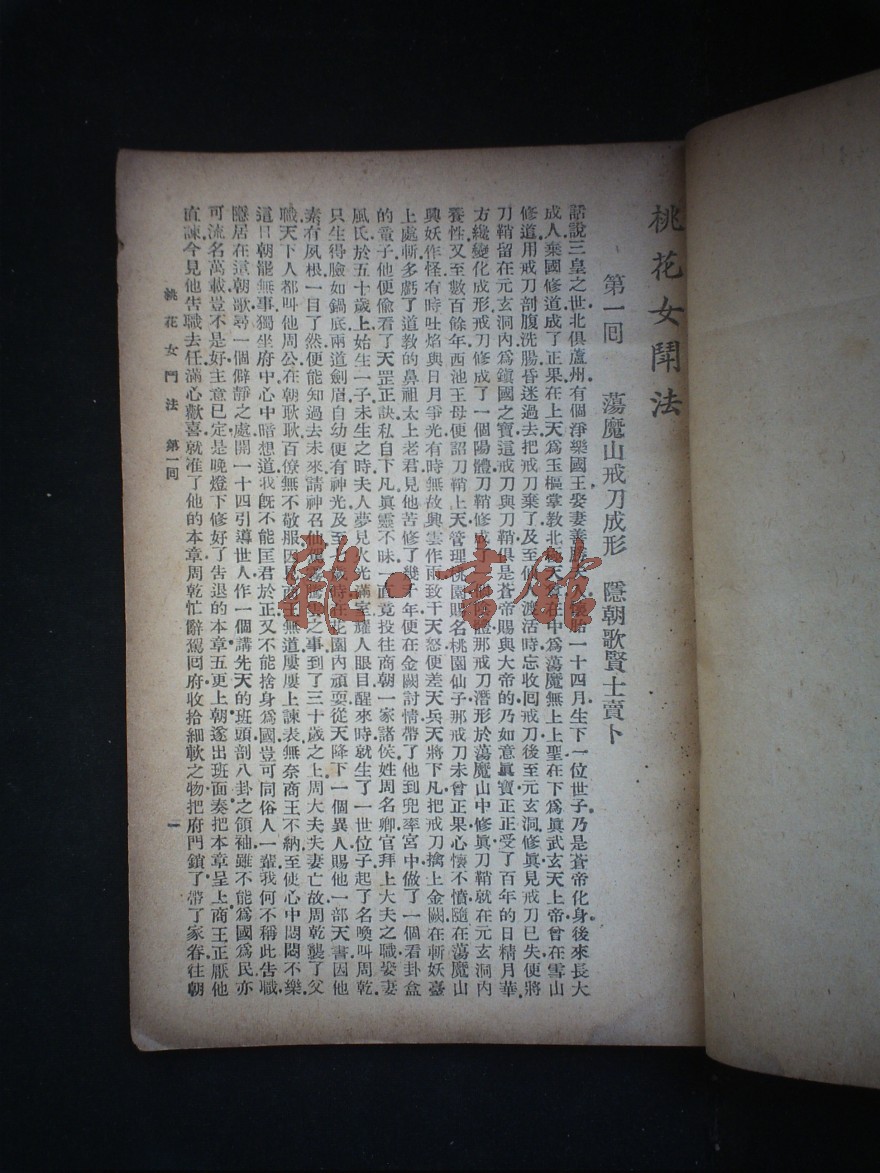 桃花女鬥法
第一回　蕩魔山戒刀成形　隱朝歌賢士賣卜
話說三皇之世北俱蘆州有個淨樂國王娶妻善勝夫人懷胎一十四月生下一位世子乃是蒼帝化身後來長大
成人棄國修道成了正果在上天爲玉樞掌教北極天尊在中爲蕩魔無上上聖在下爲真武玄天上帝曾在雪山
修道用戒刀剖腹洗腸昏迷過去把戒刀棄了及至仙渡活時忘收囘戒刀後至元玄洞修眞見戒刀已失便將
刀鞘留在元玄洞內爲鎭國之寶這戒刀與刀鞘俱是蒼帝賜與大帝的乃如意眞寶正正受了百年的日精月華
方纔變化成形戒刀修成了一個陽體刀鞘修成了個陰體那戒刀潛形於蕩魔山中修眞刀鞘就在元玄洞內
養性又至數百餘年西池王母便詔刀鞘上天管理桃園賜名桃園仙子那戒刀未曾正果心懷不憤隨在蕩魔山
興妖作怪有時吐焰與日月爭光有時無故興雲作雨致干天怒便差天兵天將下凡把戒刀擒上金闕在斬妖臺
上處斬多虧了道教的鼻祖太上老君見他苦修了幾千年便在金闕討情帶了他到兜率宮中做了一個看卦盒
的童子他便偷看了天罡正訣私自下凡眞靈不昧一直竟投往商朝一家諸侯姓周名卿官拜上大夫之職娶妻
風氏於五十歲上始生一子未生之時夫人夢見火光滿室耀人眼目醒來時就生了一世位子起了名喚叫周乾
只生得臉如鍋底兩道劍眉自幼便有神光及至七歲時在花園內頑耍從天降下一個異人賜他一部天書因他
素有夙根一目了然便能知過去未來請神召仙駕霧騰雲之事到了三十歲之上周大夫夫妻亡故周乾襲了父
職天下人都叫他周公在朝耿耿百僚無不敬服因見商王無道屢屢上諫表無奈商王不納至使心中悶悶不樂
這日朝罷無事獨坐府中心中暗想道我旣不能匡君於正又不能捨身爲國豈可同俗人一輩我何不稱此告職
隱居在這朝歌尋一個僻靜之處開一十四引導世人作一個講先天的班頭剖八卦之領袖雖不能爲國爲民亦
可流名萬載豈不是好主意已定是晚燈下修好了告退的本章五更上朝遂出班面奏把本章呈上商王正厭他
直諫今見他告職去任滿心歡喜就准了他的本章周乾忙辭駕囘府收拾細軟之物把府門鎖了帶了家眷往朝
桃花女鬥法　第一囘
一
雜·書館